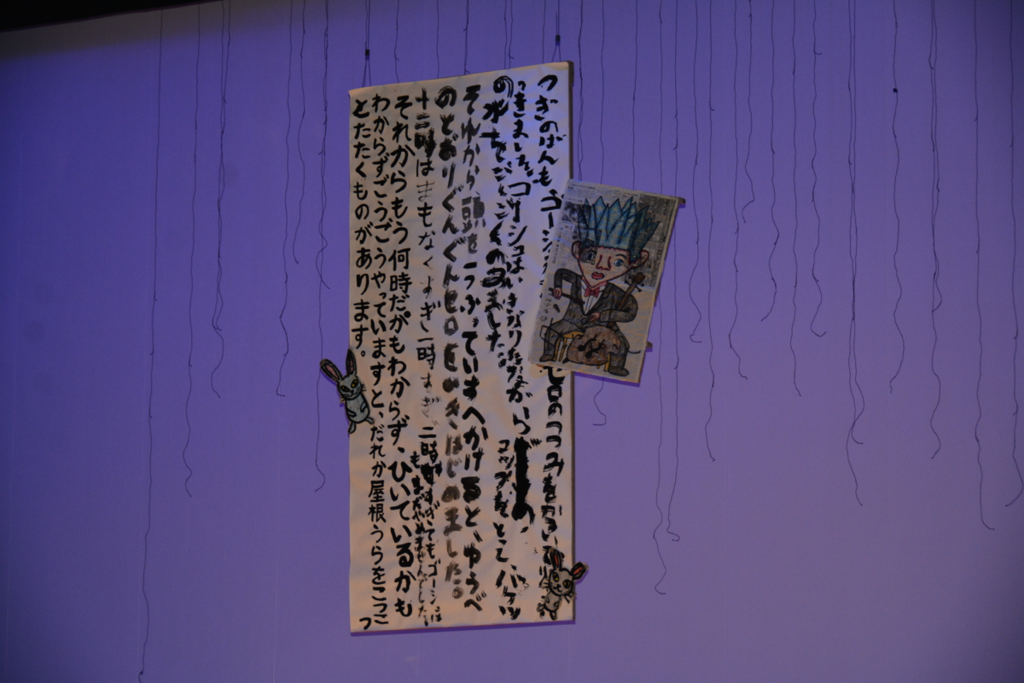 つぎのばんも ゴーシ セロのつつみをかついで
ってきました。ゴーシュはいきなりたなから コップをとってバケツ
の水をごくごくのみました。
それから頭を一つふっていすへかけると、ゆうべ
のとおりぐんぐんセロをひきはじめました。
十二時はまもなくすぎ一時もすぎ二時もすぎてもゴーシュは
もまだやめませんでした。
それからもう何時だかもわからず、ひいているかも
わからずごうごうやっていますと、だれか屋根うらをこっこ
っ
とたたくものがあります。